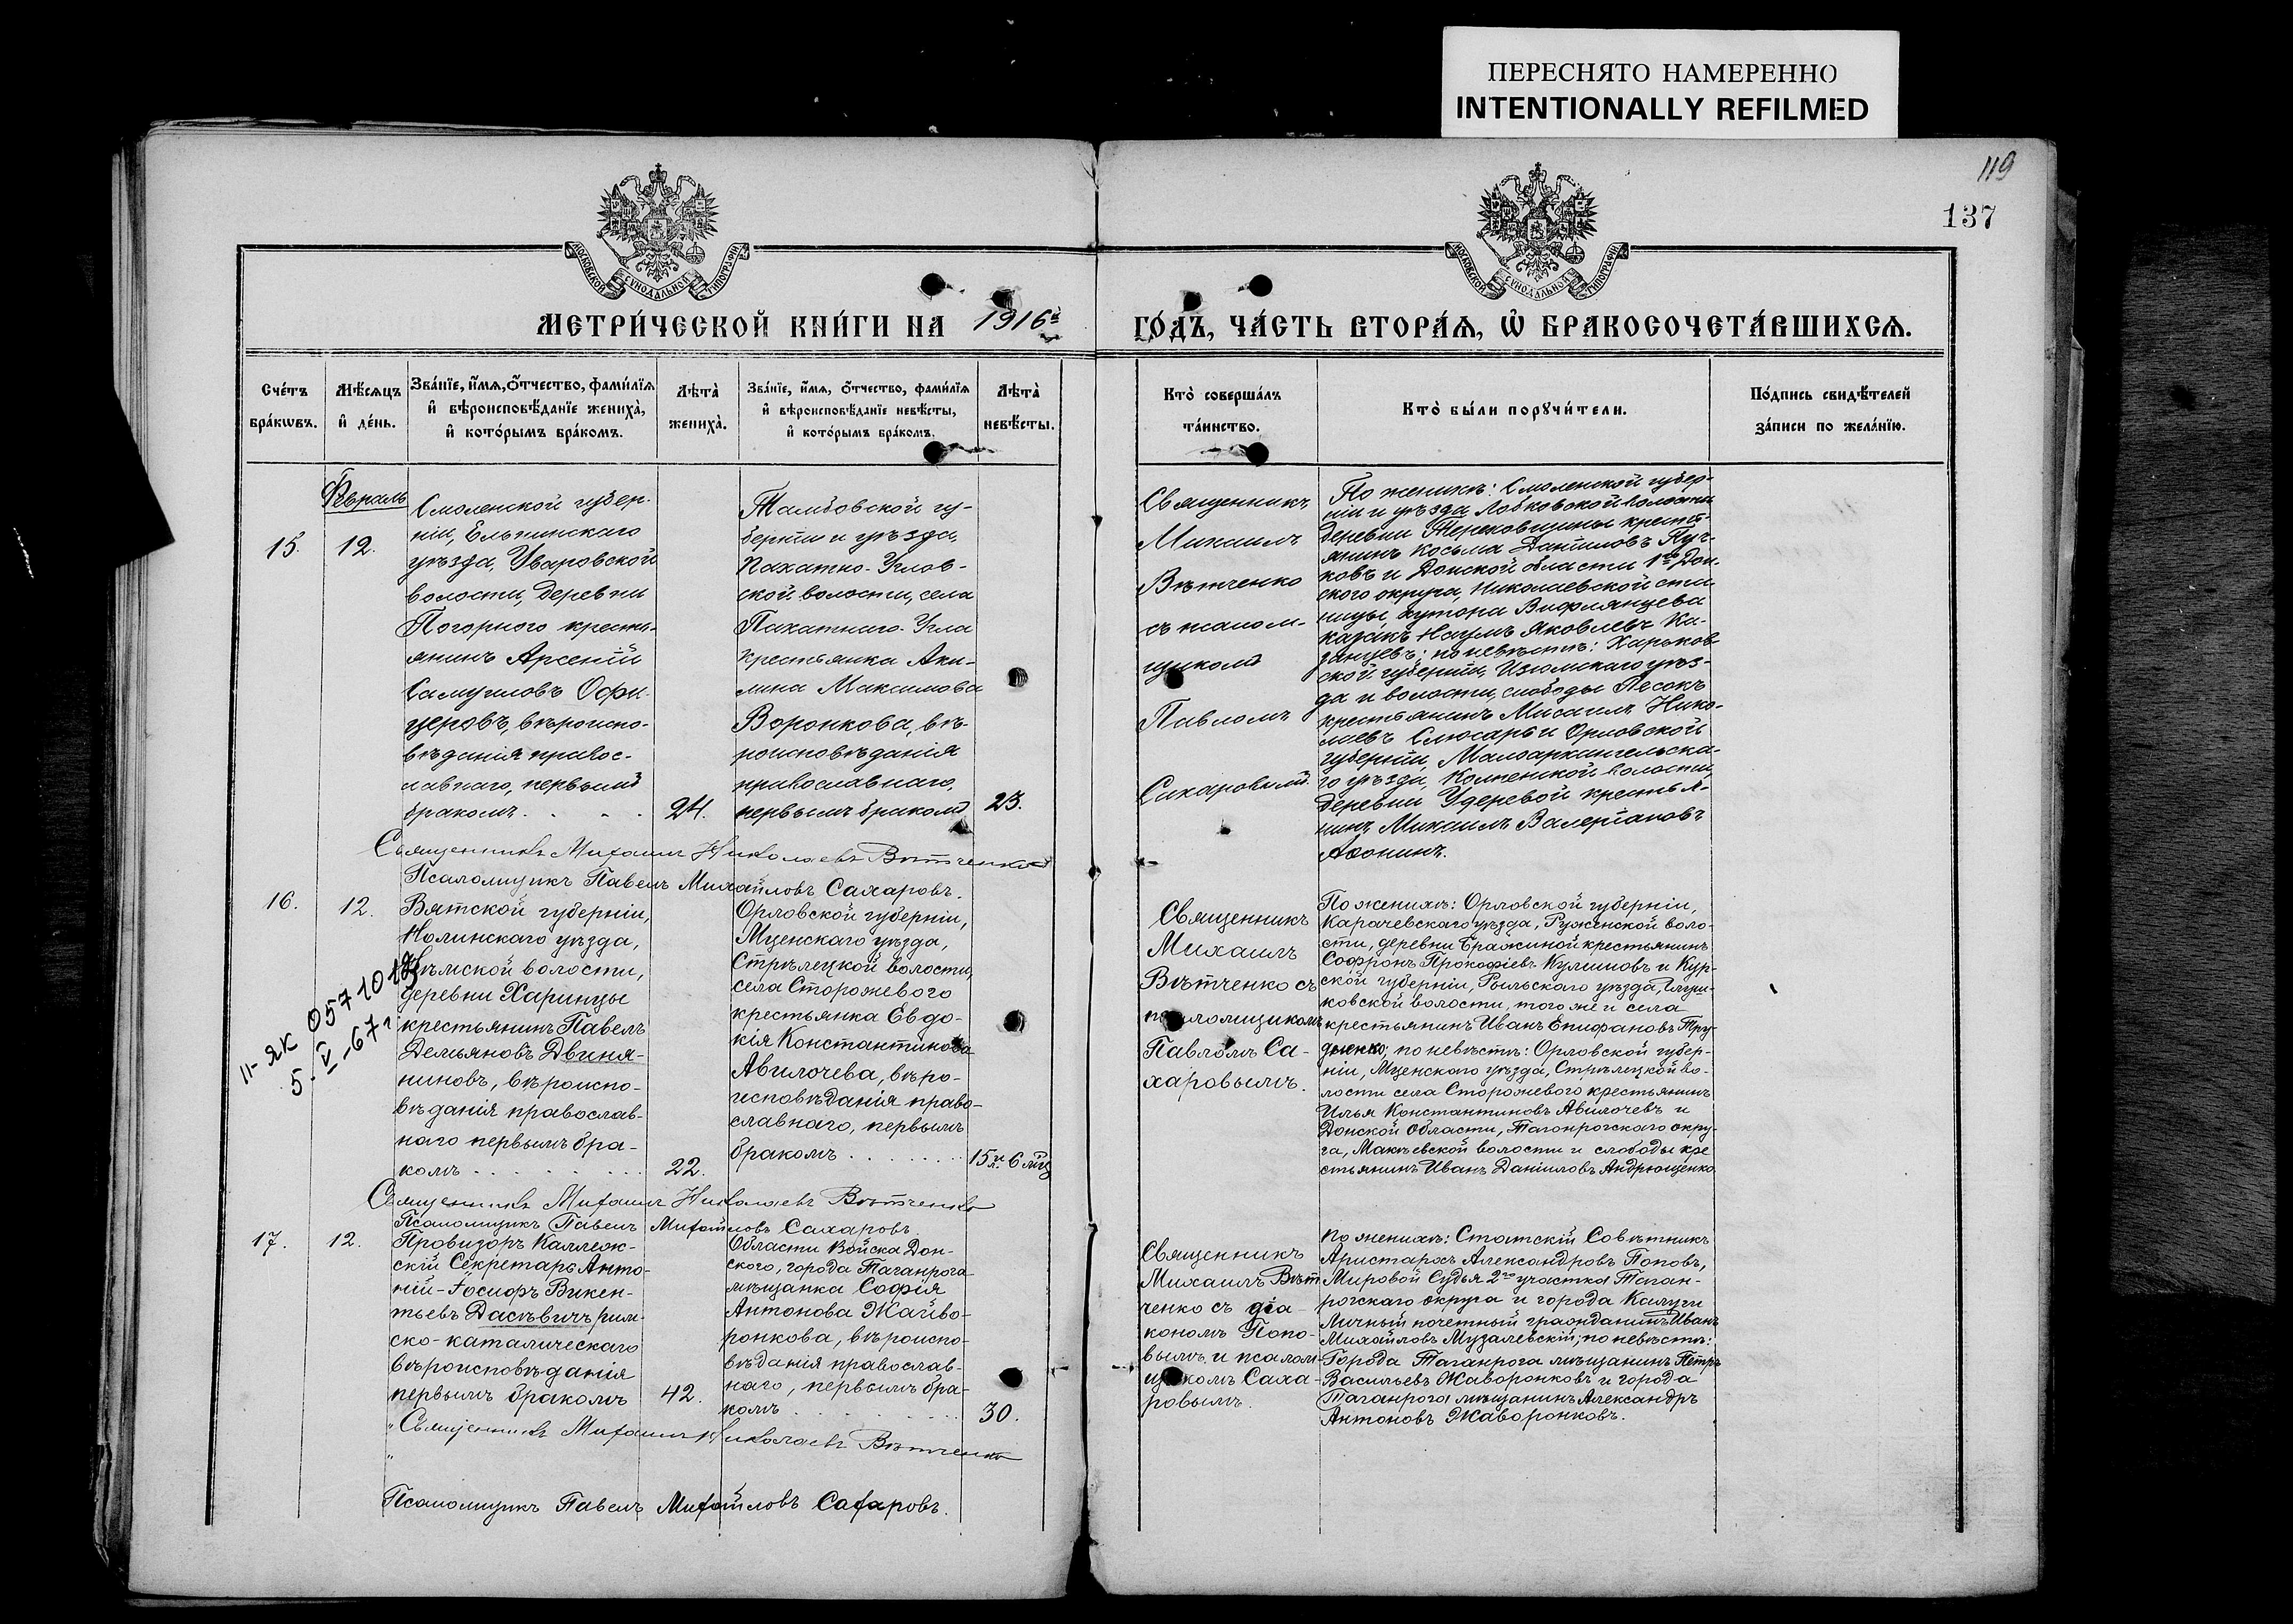 ПЕРЕСНЯТО НАМЕРЕННО
INTENTIONALLY REFILMED
119
137
МОСКОВСКОЙ СѴНОДАЛЬНОЙ ТИПОГРАФІИ
МОСКОВСКОЙ СѴНОДАЛЬНОЙ ТИПОГРАФІИ
МЕТРИ́ЧЕСКОЙ КНИ́ГИ НА 1916й
ГО́ДЪ, ЧА́СТЬ ВТОРА́Я, Ѡ҆ БРАКОСОЧЕТА́ВШИХСѦ.
Сче́тъ
бра́кѡвъ.
Мѣ́сяцъ
и҆ де́нь.
Зва́нїе, и҆́мѧ, ѻ҆́тчество, фами́лїѧ
и҆ вѣроисповѣ́данїе жениха̀,
и҆ кото́рымъ бра́комъ.
Лѣ́та̀
жениха̀.
Зва́нїе, и҆́мѧ, ѻ҆́тчество, фами́лїѧ
и҆ вѣроисповѣ́данїе невѣ́сты,
и҆ кото́рымъ бра́комъ.
Лѣ́та̀
невѣ́сты.
Кто̀ соверша́лъ
та́инство.
Кто̀ бы́ли порꙋчи́тели.
По́дпись свидѣ́телей
за́писи по жела́нїю.
Февраль
15.
12.
Смоленской губер-
ніи, Ельнинскаго
уѣзда, Уваровской
волости, деревни
Погорного кресть-
янинъ Арсеній
Самуиловъ Офи-
церовъ, вѣроиспо-
вѣданія правос-
лавнаго, первымъ
бракомъ . . . .
24.
Тамбовской гу-
берніи и уѣзда,
Пахатно-Углов-
ской волости, села
Пахатнаго-Угла
крестьянка Аки-
лина Максимова
Воронкова, вѣ-
роисповѣданія
православнаго,
первымъ бракомъ
23.
Священникъ
Михаилъ
Вѣтченко
съ псалом-
щикомъ
Павломъ
Сахаровымъ.
По женихѣ: Смоленской губер-
ніи и уѣзда Лобковской волости
деревни Тереховщины кресть-
янинъ Косьма Даниловъ
и Донской области 1го Дон-
ского округа, Николаевской ста-
ницы, хутора Вифлянцева
казакъ Наумъ Яковлевъ Ка-
занцевъ; по невѣстѣ: Харьков-
ской губерніи, Изюмскаго уѣз-
да и волости, слободы Песокъ
крестьянинъ Михаилъ Нико-
лаевъ Слюсарь и Орловской
губерніи, Малоархангельска-
го уѣзда, Колпенской волости,
деревни Удеревой крестья-
нинъ Михаилъ Валеріановъ
Афонинъ.
Священникъ Михаилъ Николаевъ Вѣтченко
Псаломщикъ Павелъ Михайловъ Сахаровъ.
16.
12.
II-ЯК 057101
5.V-67г
Вятской губерніи,
Нолинскаго уѣзда,
Нѣмской волости,
деревни Харинцы
крестьянинъ Павелъ
Демьяновъ Двиня-
ниновъ, вѣроиспо-
вѣданія православ-
наго первымъ бра-
комъ . . . . . . . .
22.
Орловской губерніи,
Мценскаго уѣзда,
Стрѣлецкой волости,
села Сторожевого
крестьянка Евдо-
кія Константинова
Авилочева, вѣро-
исповѣданія право-
славнаго, первымъ
бракомъ . . . . . . .
15 л. и 6 мѣц
Священникъ
Михаилъ
Вѣтченко съ
псаломщикомъ
Павломъ Са-
харовымъ.
По женихѣ: Орловской губерніи,
Карачевскаго уѣзда, Руженской воло-
сти, деревни Бражиной крестьянинъ
Софронъ Прокофіевъ Кулиновъ и Кур-
ской губерніи, Рыльскаго уѣзда, Глуш-
ковской волости, того же и села
крестьянинъ Иванъ Епифановъ Тру-
дненко; по невѣстѣ: Орловской губер-
ніи, Мценскаго уѣзда, Стрѣлецкой во-
лости села Сторожевого крестьянинъ
Илья Константиновъ Авилочевъ и
Донской Области, Таганрогскаго окру-
га, Макѣевской волости и слободы кре
стьянинъ Иванъ Даніиловъ Андрющенко
Священникъ Михаилъ Николаевъ Вѣтченко
Псаломщикъ Павелъ Михайловъ Сахаровъ
17.
12.
Провизоръ Коллеж-
скій Секретарь Анто-
ній-Іосифъ Викен-
тьевъ Даскѣвичъ, рим-
ско-каталическаго
вѣроисповѣданія
первымъ бракомъ
42.
Области Войска Дон-
ского, города Таганрога
мѣщанка Софія
Антонова Жайво-
ронкова, вѣроиспо-
вѣданія православ-
наго, первымъ бра-
комъ . . . . . . . .
30.
Священникъ
Михаилъ Вѣт
ченко съ діа
кономъ Попо-
вымъ и псалом-
щикомъ Саха-
ровымъ.
По женихѣ: Статскій Совѣтникъ
Аристархъ Александровъ Поповъ,
Мировой Судья 2го участка Таган-
рогскаго округа и города Калуги
Личный почетный гражданинъ Иванъ
Михайловъ Музалевскій; по невѣстѣ:
Города Таганрога мѣщанинъ Петръ
Васильевъ Жаворонковъ и города
Таганрога мѣщанинъ Александръ
Антоновъ Жаворонковъ.
Священникъ Михаилъ Николаевъ Вѣтченко
Псаломщикъ Павелъ Михайловъ Сахаровъ.